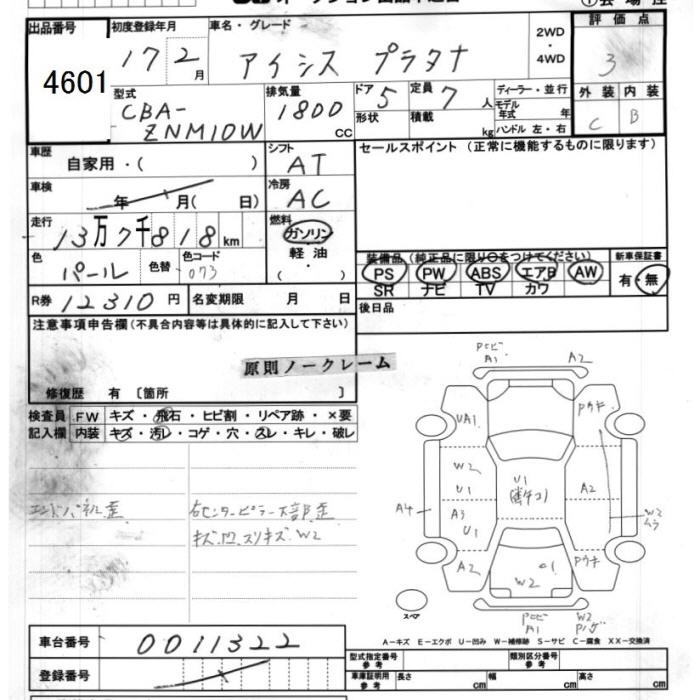 出品番号
4601
初度登録年月
17 2月
車名・グレード
アイシス プラタナ
2WD
・
4WD
評価点
3
外装 内装
C B
型式
CBA-
ZNM10W
排気量
1800
CC
ドア
5
定員
7人
形状
積載
kg
ディーラー・並行
モデル
年式 年
ハンドル 左・右
車歴
自家用・( )
シフト
AT
セールスポイント (正常に機能するものに限ります)
車検
年 月( 日)
冷房
AC
走行
13万7千818km
燃料
ガソリン
軽油
・
( )
色
パール
色替
色コード
073
装備品 (純正品に限り〇をつけてください)
PS PW ABS エアB AW
SR ナビ TV カワ
新車保証書
有・無
R券 12310円
名変期限 月 日
後日品
注意事項申告欄(不具合内容等は具体的に記入して下さい)
原則ノークレーム
修復歴 有 〔箇所 〕
検査員
記入欄
FW キズ・飛石・ヒビ割・リペア跡・×要
内装 キズ・汚レ・コゲ・穴・スレ・キレ・破レ
エンドパネル歪
右センターピラー下部歪
キズ.凹.スリキズ.W2
Pヒビ
A1
A2
UA1
Pウキ
W2
U1
U1
A2
A4
A3
U1
W2
ムラ
A2
Pウキ
U1
W2
スペア
Pヒビ
A1
W2
車台番号
0011322
A−キズ E−エクボ U−凹み W−補修跡 S−サビ C−腐食 XX−交換済
登録番号
型式指定番号
参考
類別区分番号
参考
車庫証明用
参考
長さ cm 幅 cm 高さ cm